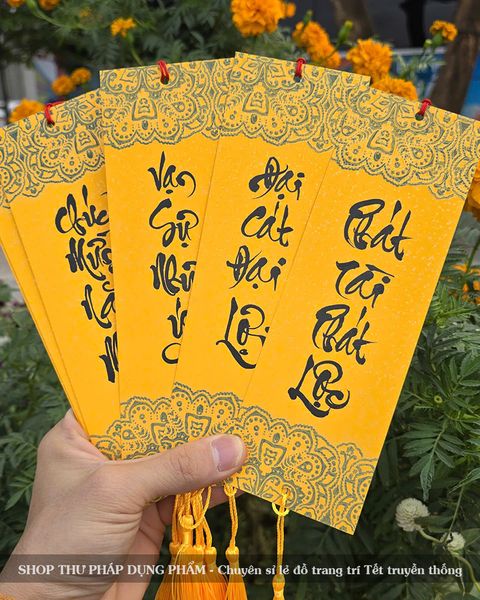 Chúc
Mừng
Năm
M
Vạn
Sự
Như
Ý
Đại
Cát
Đại
Lợi
Phát
Tài
Phát
Lộc
SHOP THƯ PHÁP DỤNG PHẨM - Chuyên sỉ lẻ đồ trang trí Tết truyền thống